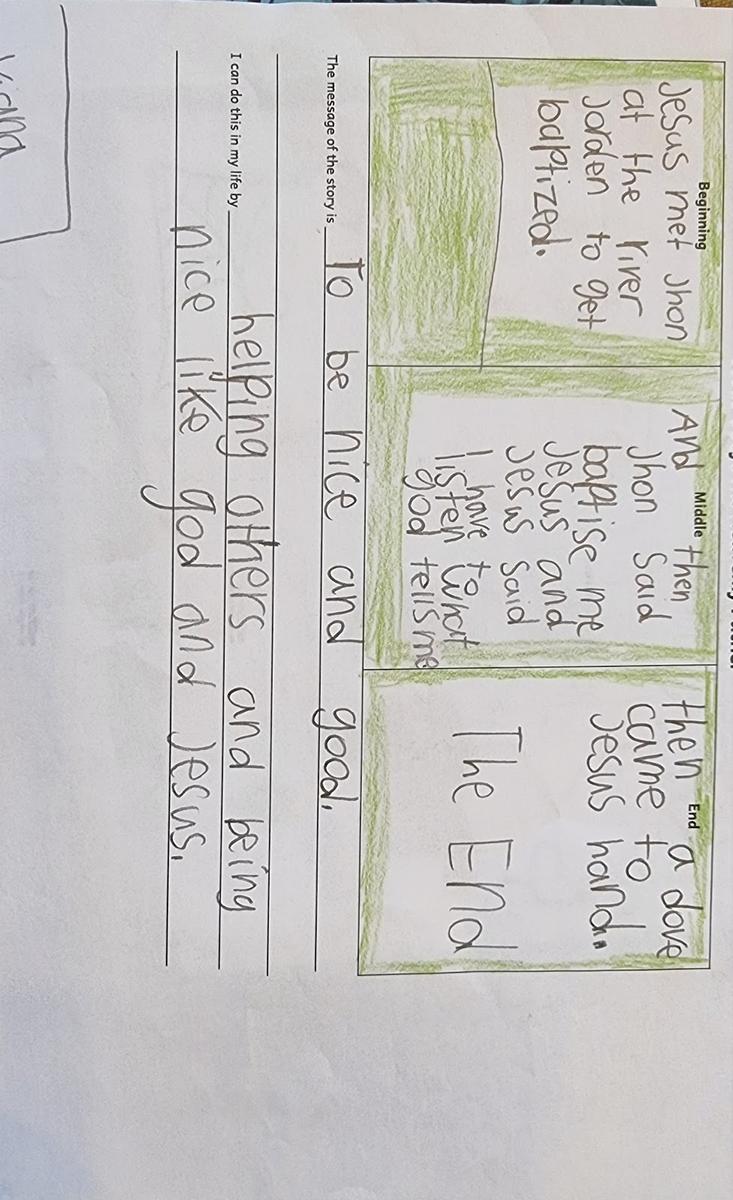 Beginning
Jesus met Jhon
at the river
Jorden to get
baptized.
Middle
And then
Jhon said
baptise me
Jesus and
Jesus said
I have to
listen what
god tells me
End
then a dove
came to
Jesus hand.
The End
The message of the story is To be nice and good.
I can do this in my life by helping others and being
nice like god and Jesus.